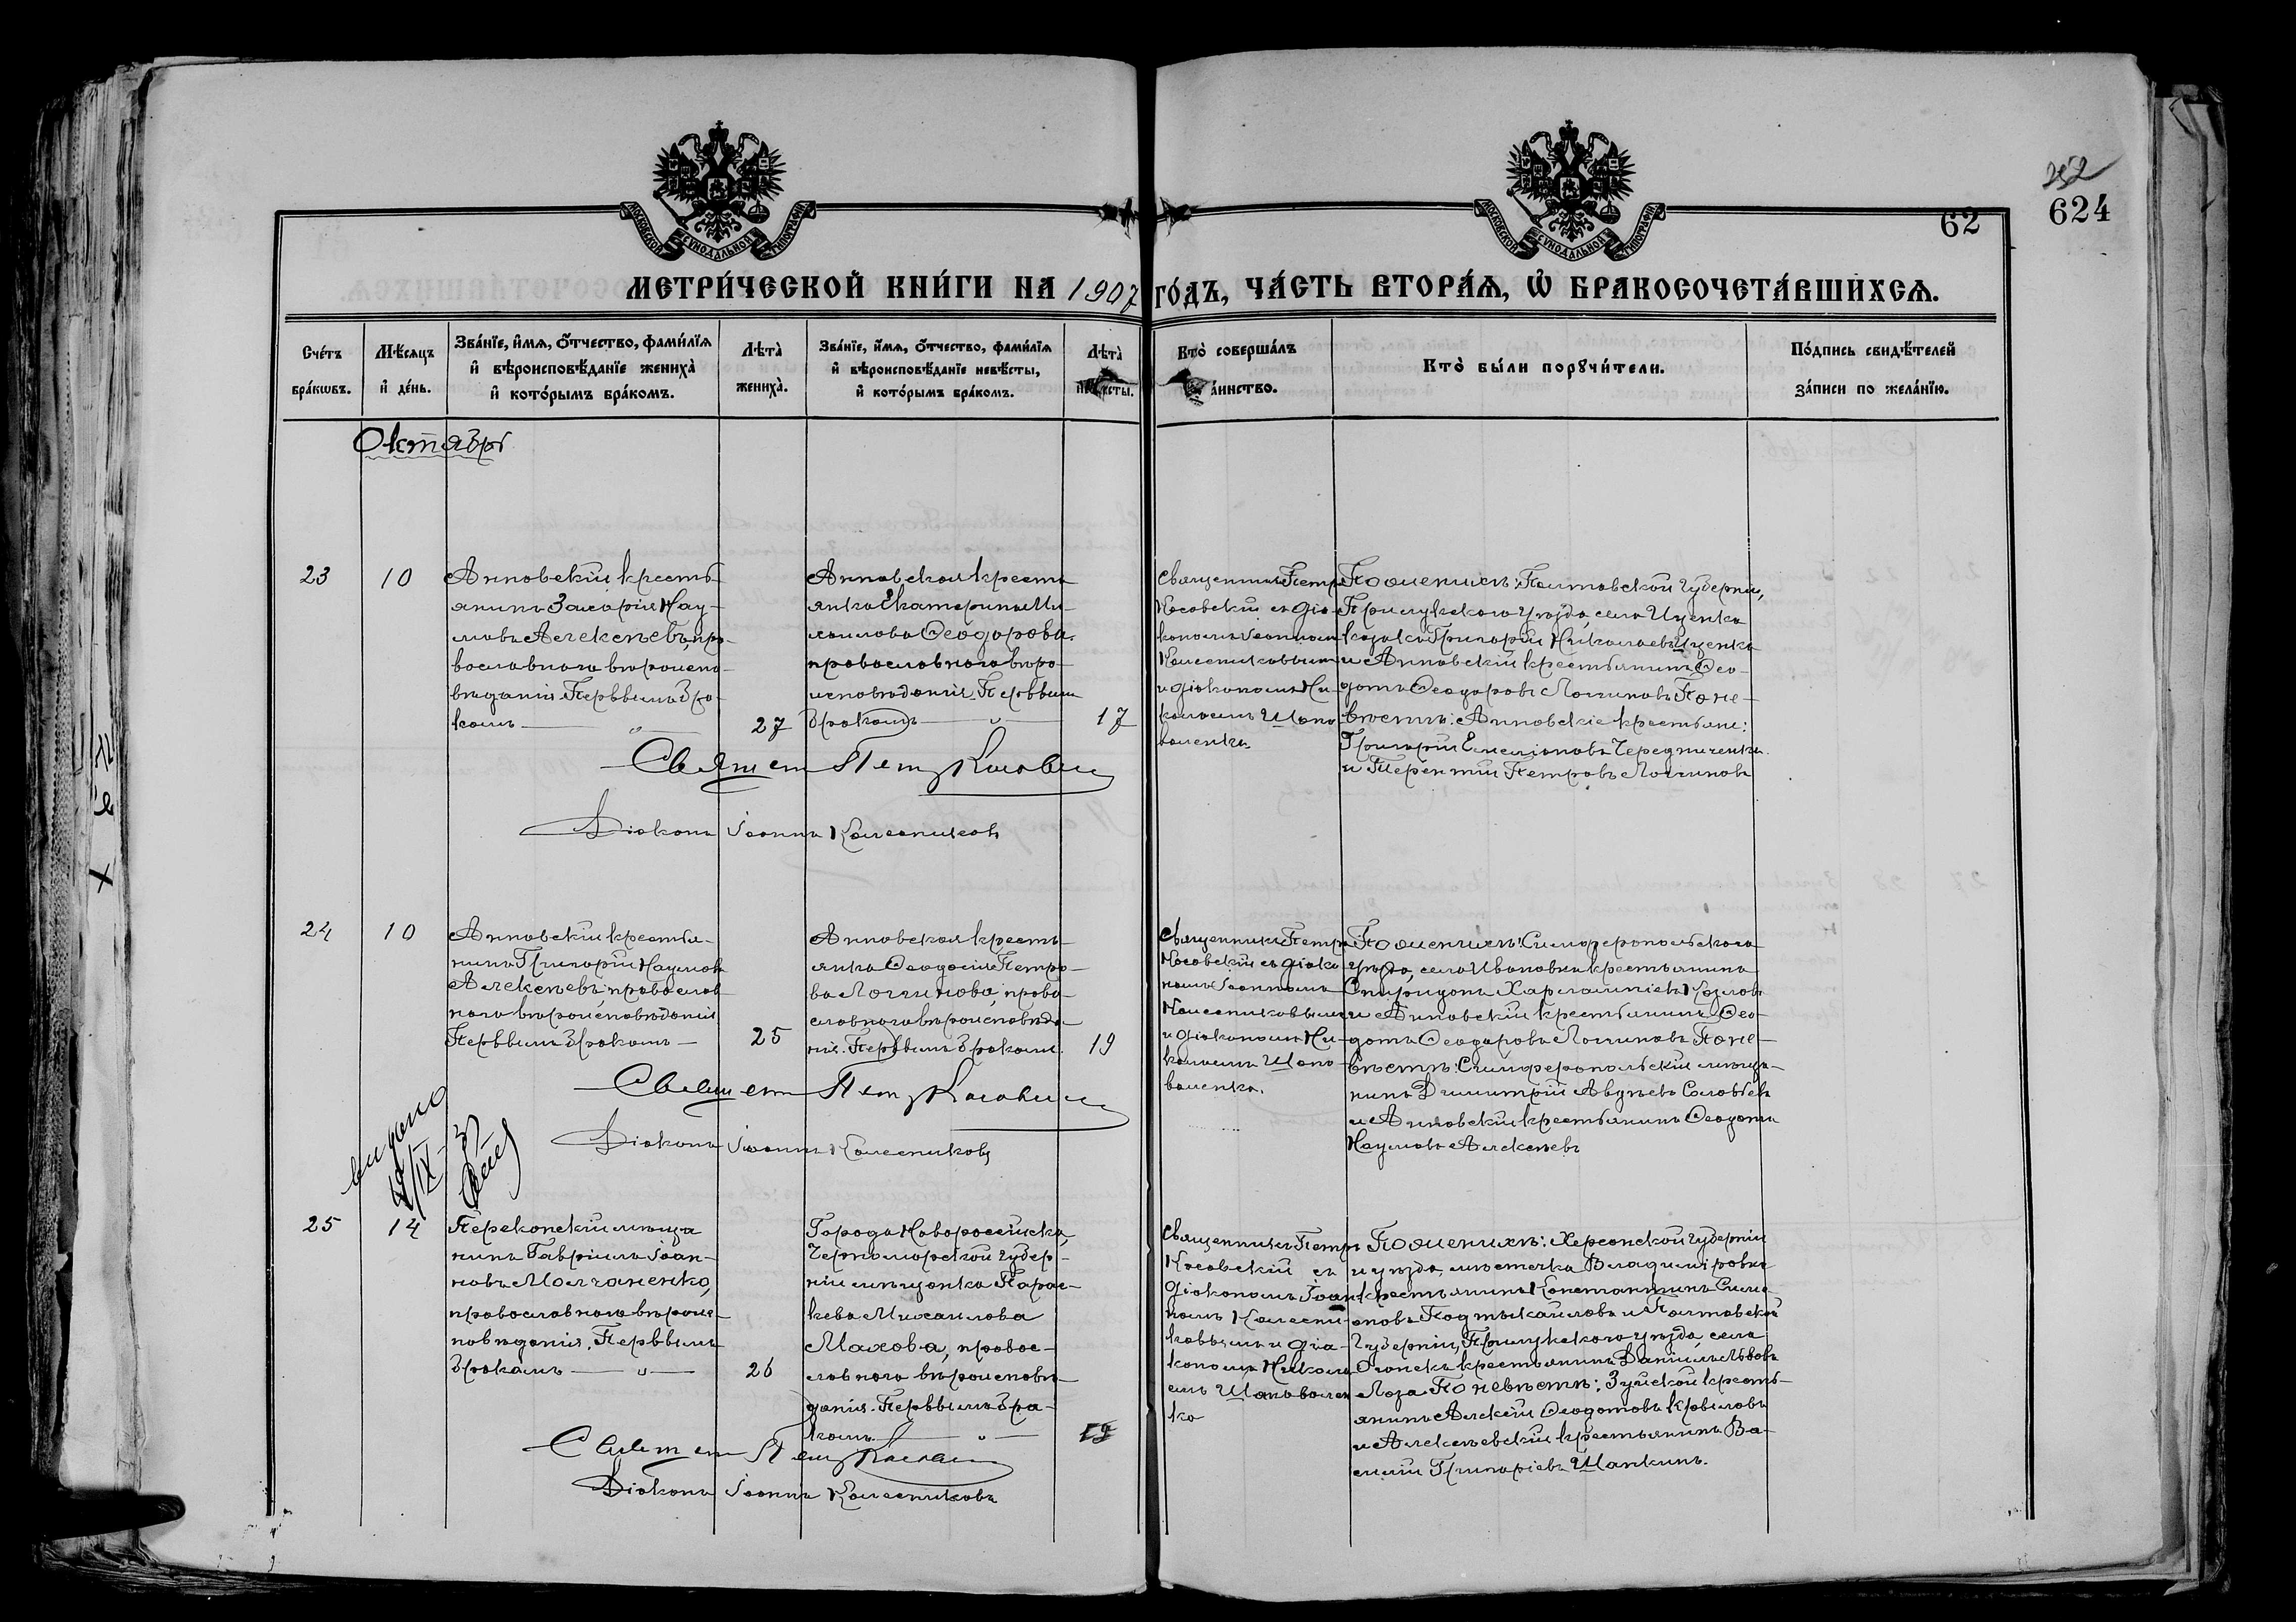 252
624
62
МОСКОВСКОЙ СѴНОДАЛЬНОЙ ТИПОГРАФІИ
МОСКОВСКОЙ СѴНОДАЛЬНОЙ ТИПОГРАФІИ
МЕТРИ́ЧЕСКОЙ КНИ́ГИ НА 1907 ГО́ДЪ, ЧА́СТЬ ВТОРА́Ѧ, Ѡ҆ БРАКОСОЧЕТА́ВШИХСѦ.
Сче́тъ бра́кѡвъ.
Мѣ́сѧцъ и҆ де́нь.
Зва́нїе, и҆́мѧ, ѻ҆́тчество, фами́лїѧ и҆ вѣроисповѣ́данїе жениха̀ и҆ кото́рымъ бра́комъ.
Лѣта̀ жениха̀.
Зва́нїе, и҆́мѧ, ѻ҆́тчество, фами́лїѧ и҆ вѣроисповѣ́данїе невѣ́сты, и҆ кото́рымъ бра́комъ.
Лѣта̀ невѣ́сты.
Кто̀ соверша́лъ та́инство.
Кто̀ бы́ли порꙋчи́тели.
По́дпись свидѣ́телей за́писи по жела́нїю.
Октябрь
23
10
Анновскій кресть-
янинъ Захарія Нау-
мовъ Алексѣевъ, пра-
вославнаго вѣроиспо-
вѣданія. Первымъ бра-
комъ — " —
27
Анновская кресть-
янка Екатерина Ми-
хаилова Ѳеодорова,
православнаго вѣро-
исповѣданія. Первымъ
бракомъ — " —
17
Священникъ Петръ
Косовскій съ діа-
кономъ Іоанномъ
Колесниковымъ
и діакономъ Ни-
колаемъ Шапо-
валенка.
По женихѣ: Полтавской губерніи,
Прилукскаго уѣзда, села Иценка
казакъ Григорій Николаевъ Иценка
и Анновскій крестьянинъ Ѳео-
дотъ Ѳеодоровъ Логиновъ. По не-
вѣстѣ: Анновскіе крестьяне:
Григорій Емеліановъ Чередниченка
и Терентій Петровъ Логиновъ
Священ Петръ Косовскій
Діаконъ Іоаннъ Колесниковъ
24
10
Анновскій крестья-
нинъ Григорій Наумовъ
Алексѣевъ, православ-
наго вѣроисповѣданія
Первымъ бракомъ —
25
Анновская кресть-
янка Ѳеодосія Петро-
ва Логинова, право-
славнаго вѣроисповѣда-
нія. Первымъ бракомъ.
19
Священникъ Петръ
Косовскій съ діако-
номъ Іоанномъ
Колесниковымъ
и діакономъ Ни-
колаемъ Шапо-
валенка.
По женихѣ: Симферопольскаго
уѣзда, села Ивановки крестьянинъ
Спиридонъ Харлампіевъ Козловъ
и Анновскій крестьянинъ Ѳео-
дотъ Ѳеодоровъ Логиновъ. По не-
вѣстѣ: Симферопольскій мѣща-
нинъ Димитрій Авдѣевъ Соловьевъ
и Анновскій крестьянинъ Ѳеодотъ
Наумовъ Алексѣевъ
Священ Петръ Косовскій
Діаконъ Іоаннъ Колесниковъ
видано
25
14
Перекопскій мѣща-
нинъ Гавріилъ Іоан-
новъ Молчаненко,
православнаго вѣроис-
повѣданія. Первымъ
бракомъ — " —
26
Города Новороссійска,
Черноморской губер-
ніи мѣщанка Парас-
кева Михаилова
Махова, правос-
лавнаго вѣроисповѣ-
данія. Первымъ бра-
комъ — " —
19
Священникъ Петръ
Косовскій съ
діакономъ Іоан-
номъ Колесни-
ковымъ и діа-
кономъ Никола-
емъ Шаповален-
ка
По женихѣ: Херсонской губерніи
и уѣзда, мѣстечка Владиміровки
крестьянинъ Константинъ Симе-
оновъ Подмихайловъ и Полтавской
губерніи, Прилукскаго уѣзда, села
крестьянинъ Даніилъ Львовъ
Лоза. По невѣстѣ: Зуйской кресть-
янинъ Алексій Ѳеодотовъ Кравиловъ
и Алексѣевскій крестьянинъ Ва-
силій Григоріевъ Шапкинъ.
Священ Петръ Косовскій
Діаконъ Іоаннъ Колесниковъ